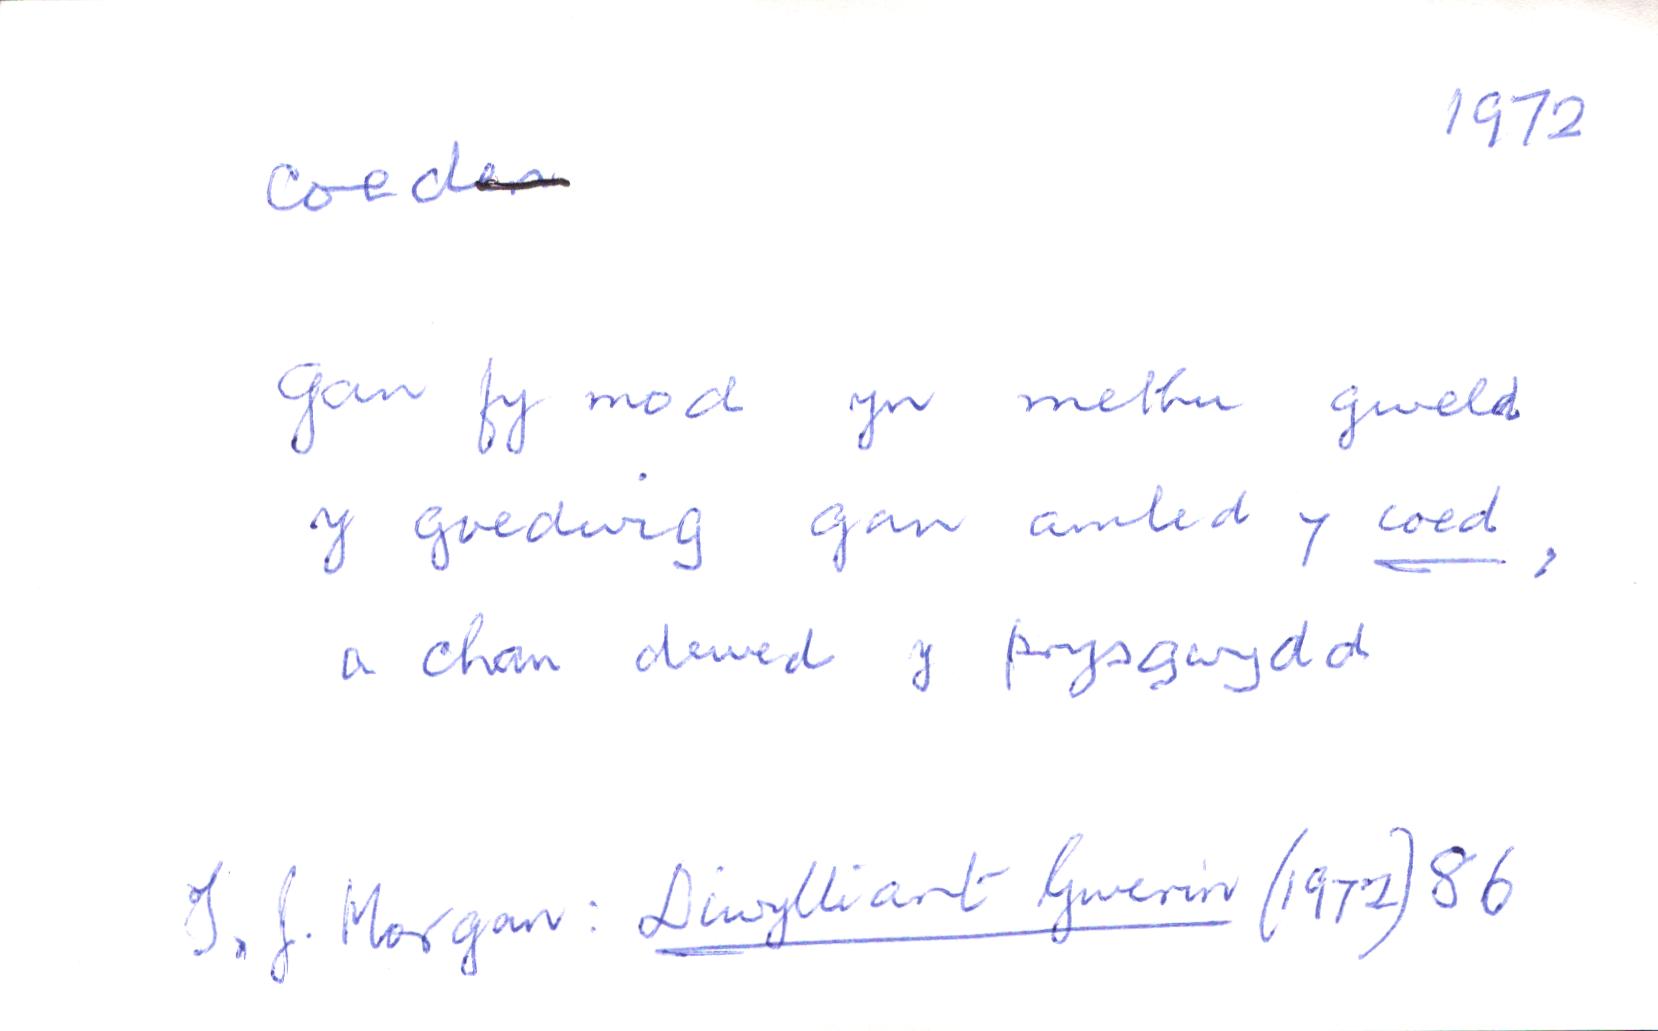 1972
coeden
Gan fy mod yn methu gweld
y goedwig gan amled y coed,
a chan dewed y prysgwydd
T. J. Morgan: Diwylliant Gwerin (1972) 86